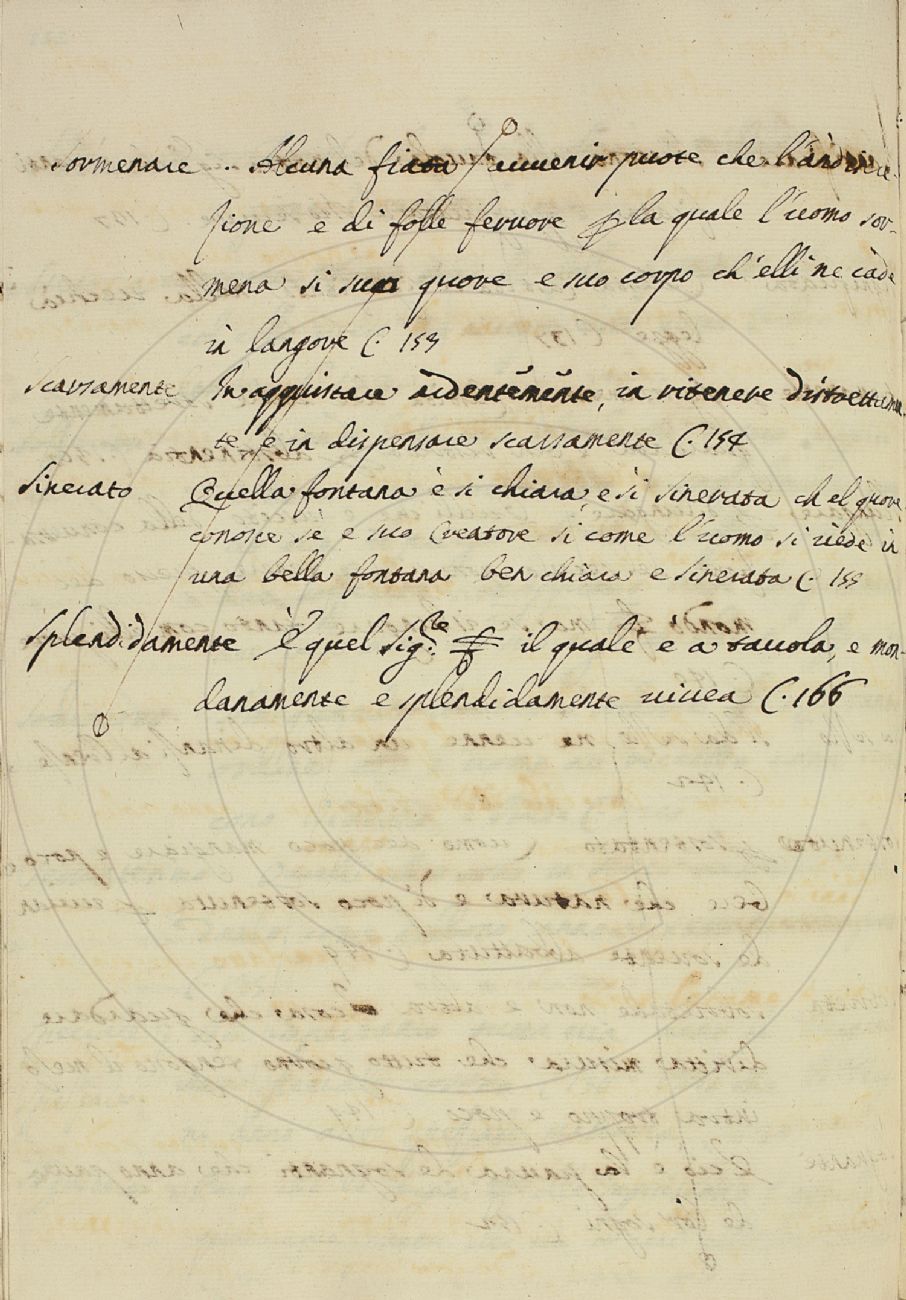 Sormenare .. Alcuna fiata avvenir puote che l'andiscre-
zione e di folle fervore p la quale l'uomo sor-
mena si suo quore e suo corpo ch'elli ne cade
in langore C. 153
Scarsamente In aquistare ardentemente, in ritenere distrettamen-
te, e in dispensare scarsamente C. 154
Sinerato Quella fontana è si chiara, e sì sinerata ch el quore
conosce sè e suo Creatore si come l'uomo si vede in
una bella fontana ben chiara e sinerata C. 155
Splendidamente È quel Sig.re il quale e a tavola, e mon-
danamente e splendidamente vivea C. 166